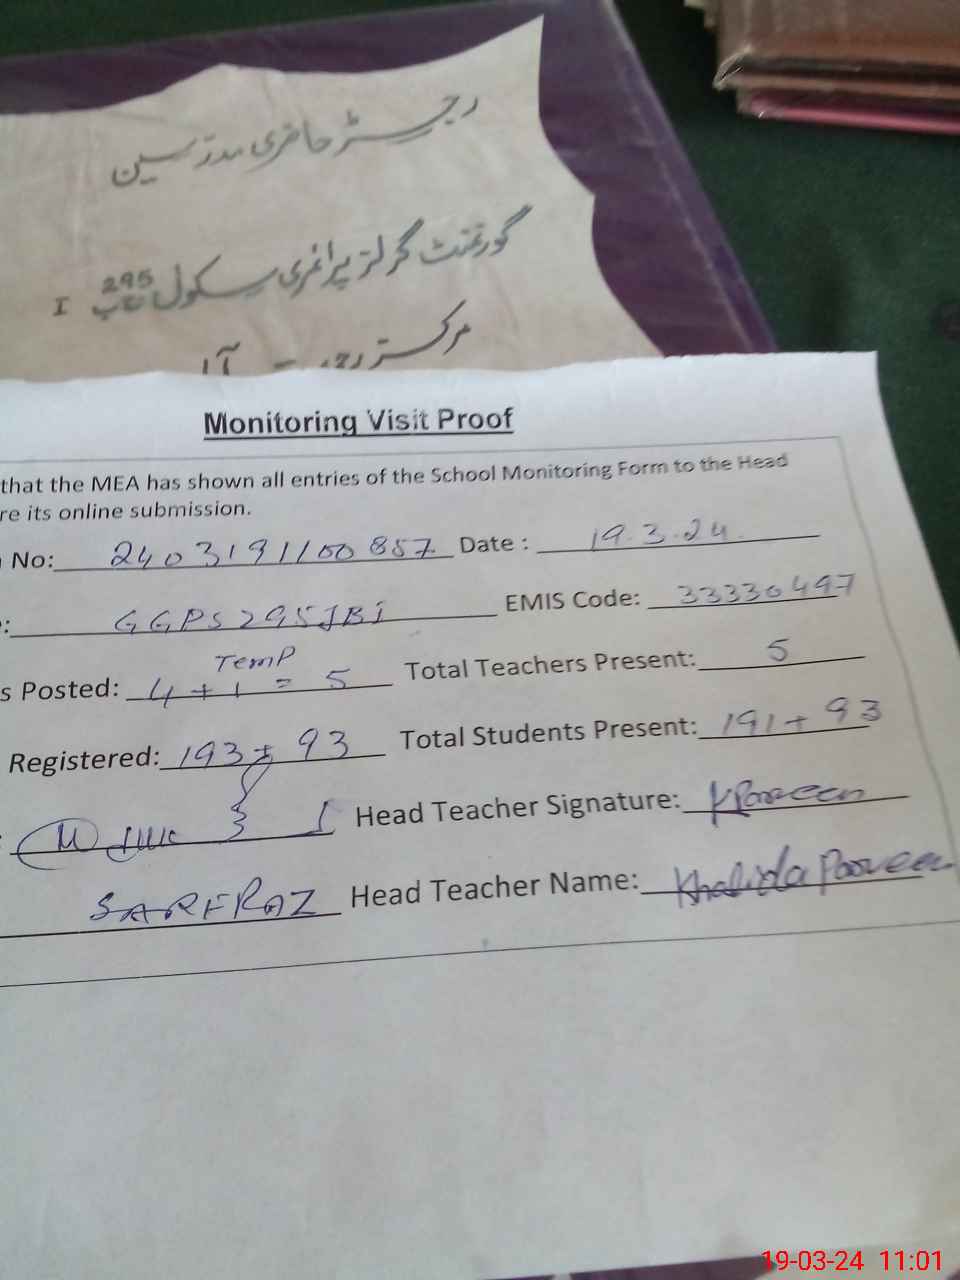 رجسٹر حاضری مدرسین
گورنمنٹ گرلز پرائمری سکول 295 I
مرکز
Monitoring Visit Proof
that the MEA has shown all entries of the School Monitoring Form to the Head
re its online submission.
No: 2403191100857 Date : 19.3.24
GGPS 295JBI EMIS Code: 33330497
s Posted: 4+1 Temp = 5 Total Teachers Present: 5
Registered: 193+ 93 Total Students Present: 191+ 93
Head Teacher Signature: KParveen
SARFRAZ Head Teacher Name: Khalida Parveen
19-03-24 11:01